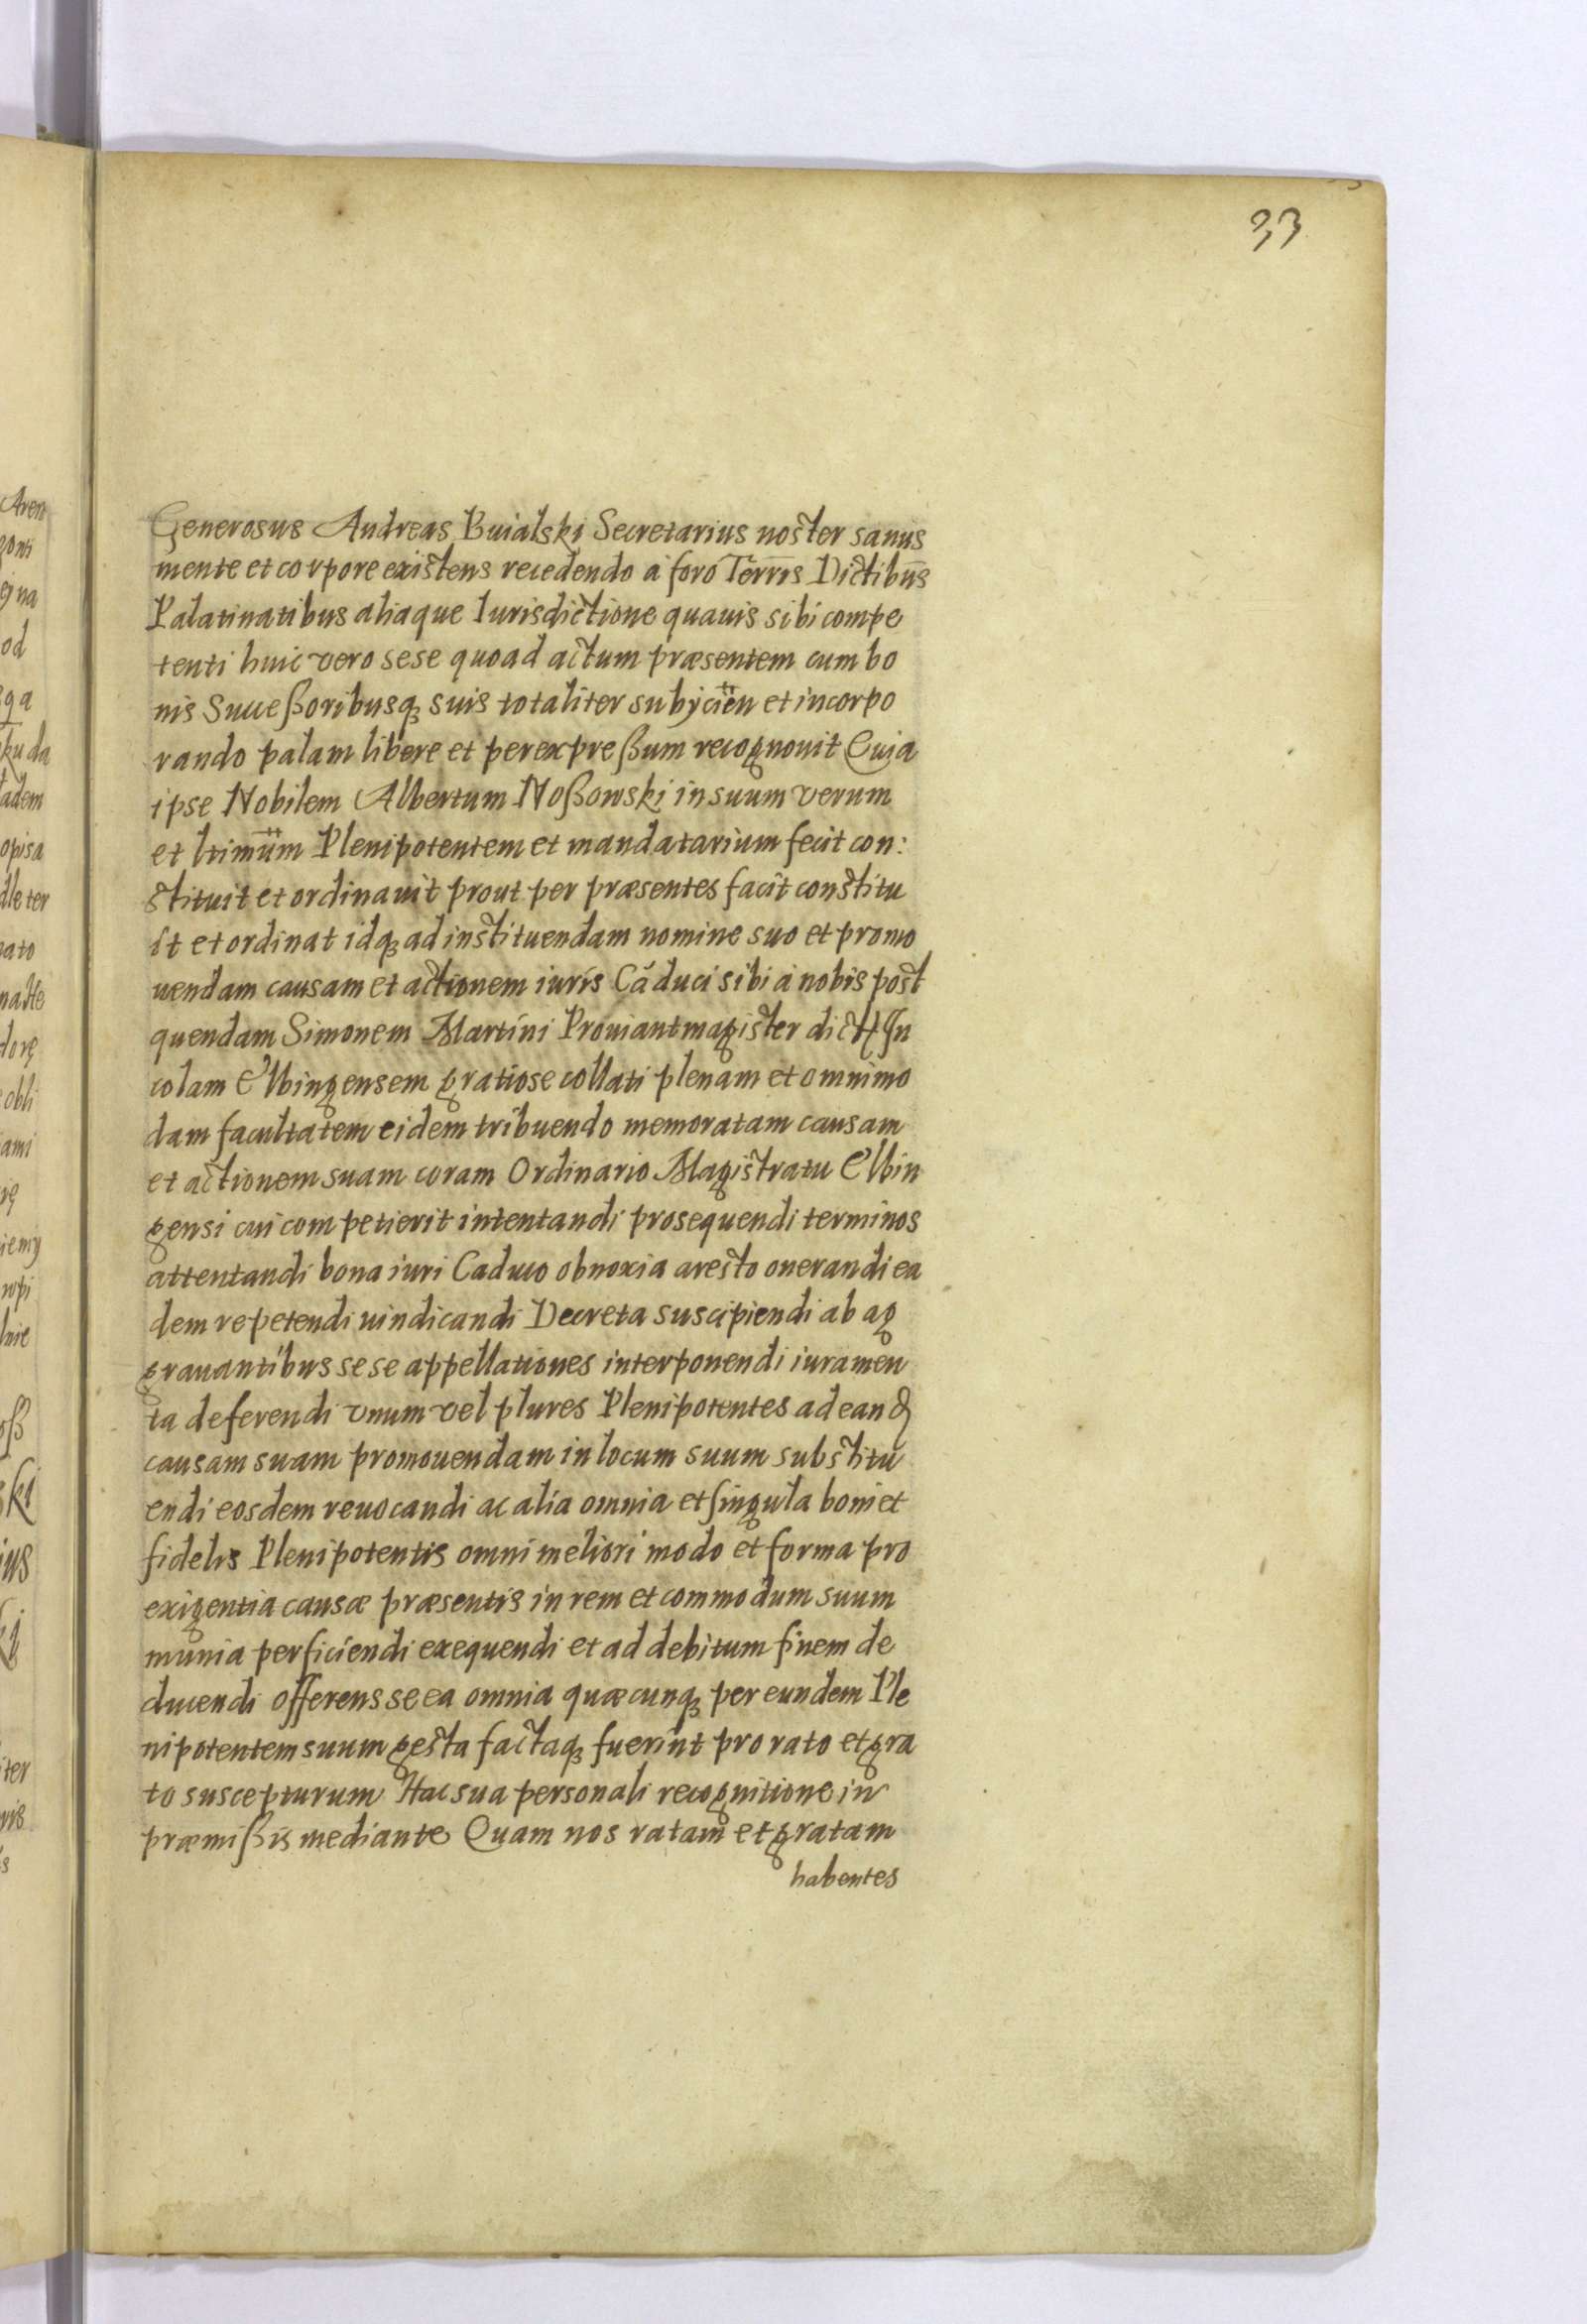 33
Generosus Andreas Buialski Secretarius noster sanus
mente et corpore existens recedendo à foro Terris Dictibus
Palatinatibus aliaque Iurisdictione quauis sibi compe
tenti huic vero sese quoad actum præsentem cum bo
nis Successoribusq suis totaliter subijcien et incorpo
rando palam libere et per expreßum recognouit Quia
ipse Nobilem Albertum Noßowski in suum verum
et ltimum Plenipotentem et mandatarium fecit con:
stituit et ordinauit prout per præsentes facit constitu
it et ordinat idq ad instituendam nomine suo et promo
uendam causam et actionem iuris Caduci sibi à nobis post
quendam Simonem Martini Prouiantmagister dict In
colam Elbingensem gratiose collati plenam et omnimo
dam facultatem eidem tribuendo memoratam causam
et actionem suam coram Ordinario Magistratu Elbin
gensi cui competierit intentandi prosequendi terminos
attentandi bona iuri Caduco obnoxia aresto onerandi ea
dem repetendi uindicandi Decreta suscipiendi ab ag
grauantibus sese appellationes interponendi iuramen
ta deferendi vnum vel plures Plenipotentes ad eand
causam suam promouendam in locum suum substitu
endi eosdem reuocandi ac alia omnia et singula boni et
fidelis Plenipotentis omni meliori modo et forma pro
exigentia causæ præsentis in rem et commodum suum
munia perficiendi exequendi et ad debitum finem de
ducendi offerens se ea omnia quæcunq per eundem Ple
nipotentem suum gesta factaq fuerint pro rato et gra
to suscepturum Hac sua personali recognitione in
præmißis mediante Quam nos ratam et gratam
habentes